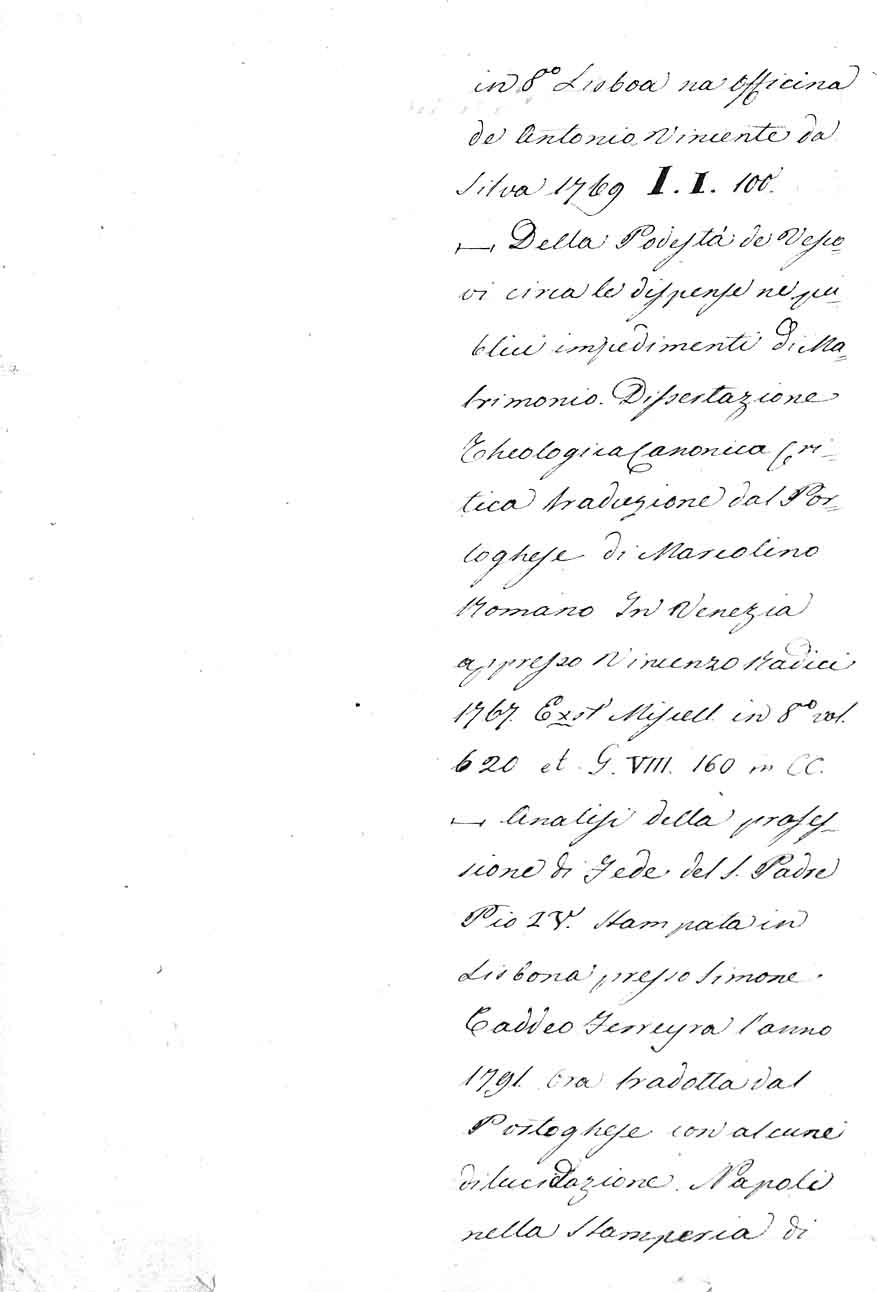 in 8º Lisboa na Officina
de Antonio Vincente da
Silva 1769 I. I. 100.
— Della Podestá de Vesco-
vi circa le dispense ne pu-
blici impedimenti di Ma-
trimonio. Dissertazione
Theologica Canonica Cri-
tica traduzione dal Por-
toghese di Marcolino
Romano In Venezia
appresso Vincenzo Radici
1767. Exst Miscell. in 8º vol.
620 et G. VIII. 160 in CC.
— Analisi della profes-
sione di Fede del S. Padre
Pio IV. Stampata in
Lisbona presso Simone
Taddeo Ferreyra l'anno
1791. Ora tradotta dal
Portoghese con alcune
dilucidazione. Napoli
nella Stamperia di